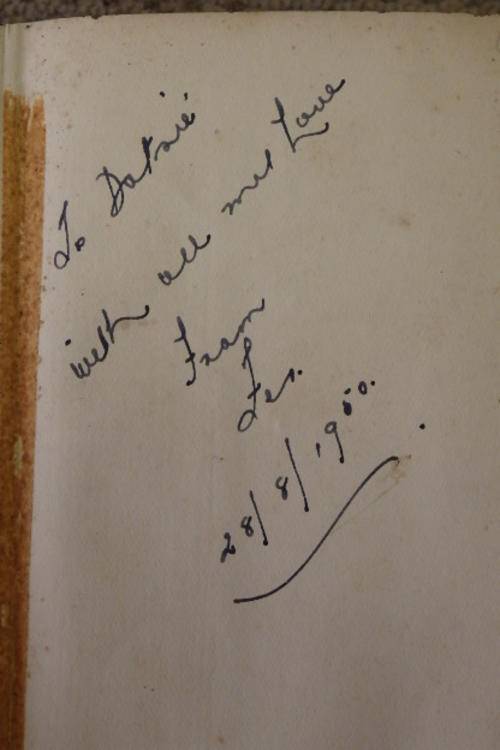 To Datsie
with all my Love
From
Les.
28/8/1950.